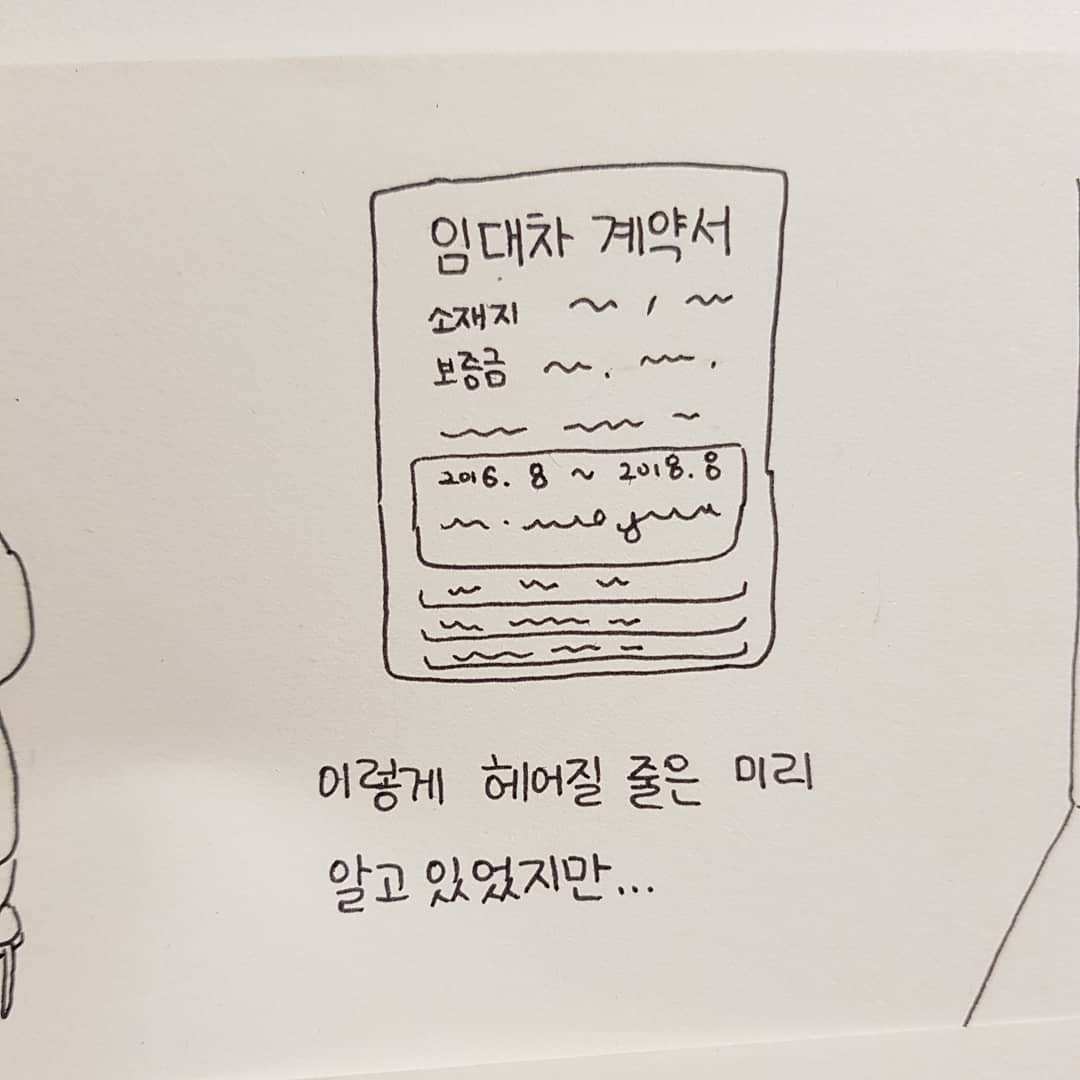 임대차 계약서
소재지
보증금
2016. 8 ~ 2018. 8
이렇게 헤어질 줄은 미리
알고 있었지만...